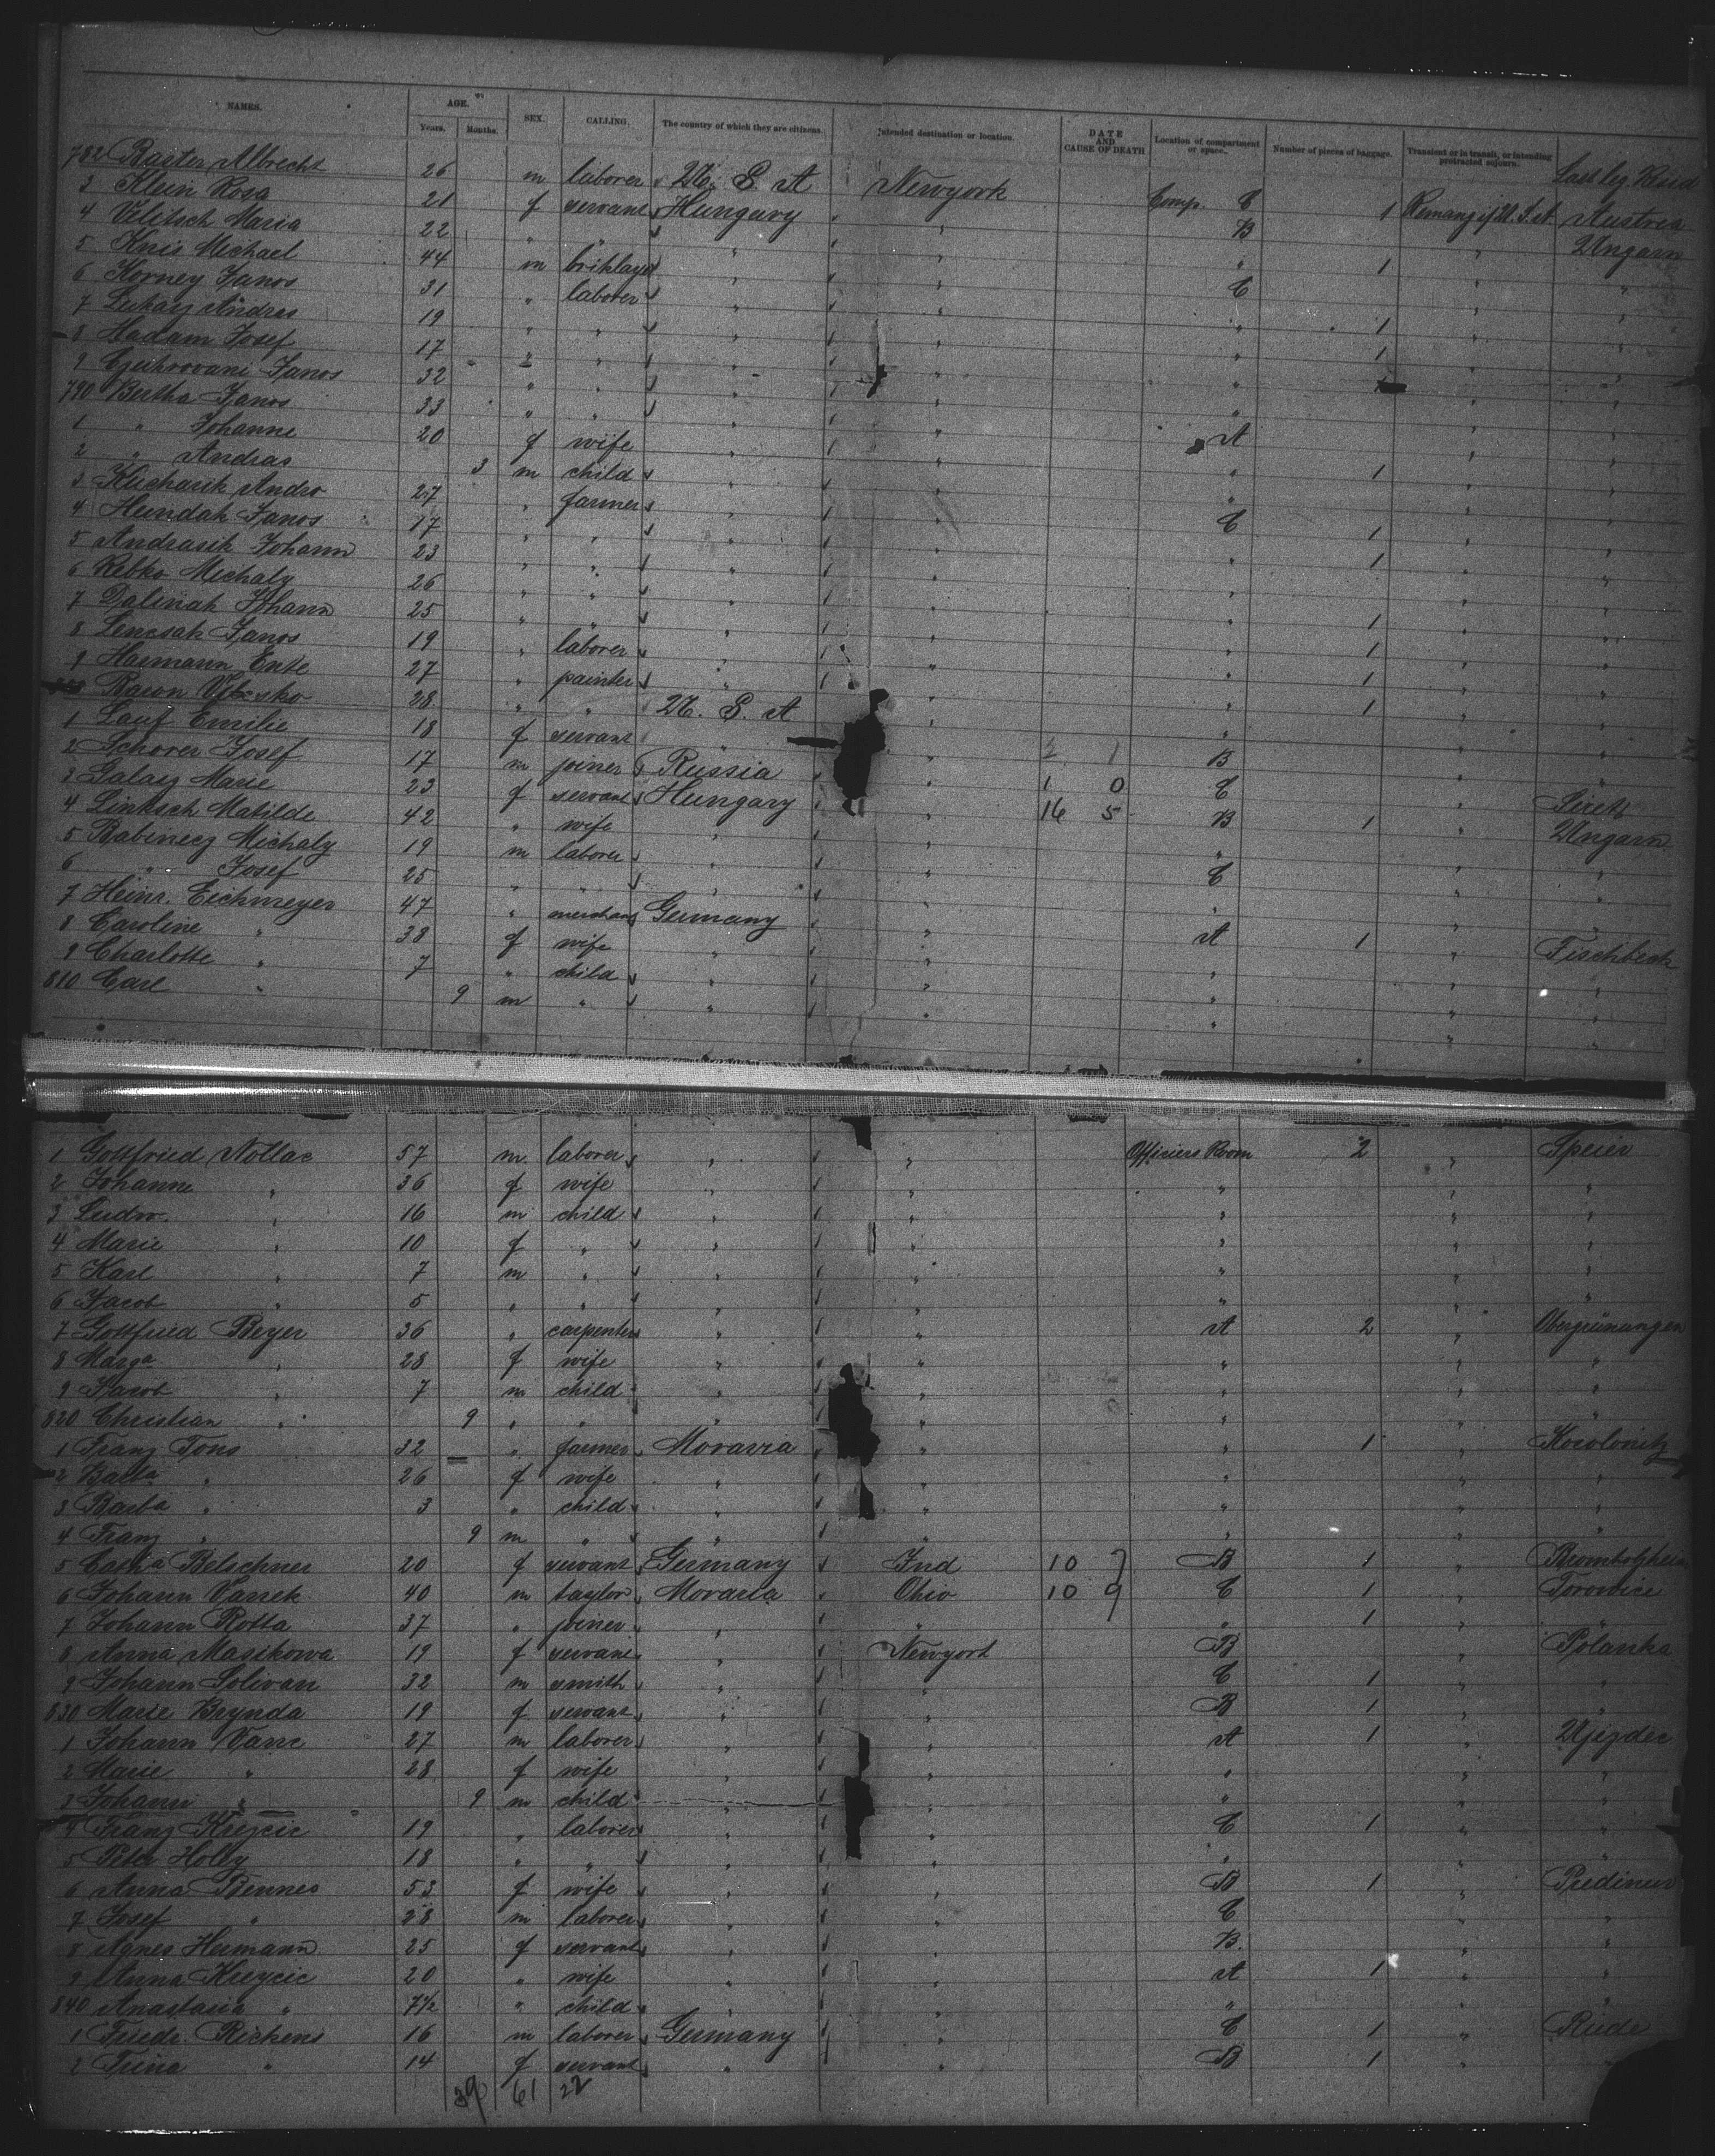 NAMES. AGE. Years. Months. SEX. CALLING. The country of which they are citizens. Intended destination or location. DATE AND CAUSE OF DEATH Location of compartment or space. Number of pieces of baggage. Transient or in transit, or intending protracted sojourn. Last leg. Resid
782 Raster Albrecht 26 m laborer U. S. A Newyork Comp. C
3 Klein Rosa 21 f servant Hungary " B 1 Remang if U. S. A Austria
4 Velitsch Maria 22 " " " " " " Ungarn
5 Knis Michael 44 m briklayer " " C 1 " "
6 Korney Janos 31 " laborer " " " " "
7 Lukacz Andras 19 " " " " " 1 " "
8 Madam Josef 17 " " " " " 1 " "
9 Czuhrovani Janos 32 " " " " " " "
790 Bertha Janos 33 " " " " A " "
1 " Johanne 20 f wife " " " 1 " "
2 " Andras 3 m child " " " " "
3 Kucharik Andro 27 " farmer " " C 1 " "
4 Hundak Janos 17 " " " " " 1 " "
5 Andrasik Johann 23 " " " " " " "
6 Rebko Michaly 26 " " " " " 1 " "
7 Dalinak Johann 25 " " " " " 1 " "
8 Lencsak Janos 19 " laborer " " " 1 " "
9 Harmann Ente 27 " painter " " " 1 " "
Baron 28 " " U. S. A " "
1 Lauf Emilie 18 f servant " B " "
2 Schorer Josef 17 m joiner Russia " 1 C " Sireth
3 Galacz Marie 23 f servant Hungary " 1 0 B 1 " Ungarn
4 Linksch Matilde 42 " wife " " 16 5 " " "
5 Babinecz Michaly 19 m laborer " " C " "
6 " Josef 25 " " " " " " "
7 Heinr. Eichmeyer 47 " merchant Germany " A 1 " Fischbeck
8 Caroline " 38 f wife " " " " "
9 Charlotte " 7 " child " " " " "
810 Carl " 9 m " " " " " "
1 Gottfried Nollac 57 m laborer " " Officiers Room 2 " Speier
2 Johanne " 36 f wife " " " " "
3 Ludw. " 16 m child " " " " "
4 Marie " 10 f " " " " " "
5 Karl " 7 m " " " " " "
6 Jacob " 5 " " " " " " "
7 Gottfried Beyer 36 " carpenter " " A 2 " Obergrünangen
8 Marga " 28 f wife " " " " "
9 Jacob " 7 m child " " " " "
820 Christian " 9 " " " " " " "
1 Franz Tons 32 " farmer Moravia " " 1 " Kocolonitz
2 Barba " 26 f wife " " " " "
3 Barba " 3 " child " " " " "
4 Franz " 9 m " " " " " "
5 Catha Belschner 20 f servant Germany Ind 10 B 1 "
6 Johann Vassek 40 m taylor Moravia Ohio 10 9 C 1 " Torowice
7 Johann Rotta 37 " joiner " " " 1 " "
8 Anna Masikowa 19 f servant " Newyork B " Polanka
9 Johann Solivan 32 m smith " " C 1 " "
830 Marie Brynda 19 f servant " " B 1 " "
1 Johann Vane 27 m laborer " " A 1 " Ujezdec
2 Marie " 28 f wife " " " " "
3 Johann " 9 m child " " " " "
4 Franz Krejcic 19 " laborer " " C 1 " "
5 Peter Holly 18 " " " " " " "
6 Anna Bennes 53 f wife " " B 1 "
7 Josef " 28 m laborer " " C " "
8 Agnes Hermann 25 f servant " " B. " "
9 Anna Krejcic 20 " wife " " A 1 " "
840 Anastasia " 7½ " child " " " " "
1 Friedr. Rickens 16 m laborer Germany " C 1 " Rude
2 Trina " 14 f servant " " B 1 "
39 61 22